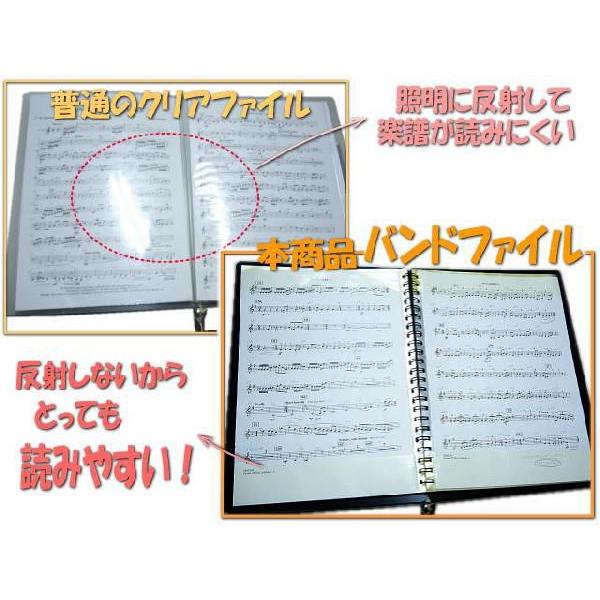 普通のクリアファイル
照明に反射して
楽譜が読みにくい
本商品バンドファイル
反射しないから
とっても
読みやすい!